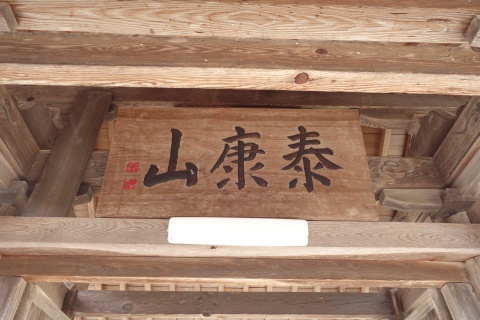 泰康山